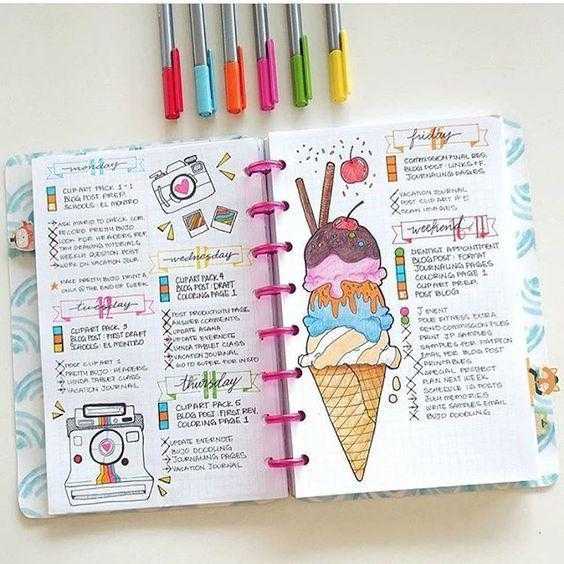 monday
CLIPART PACK 1-1
BLOG POST: PREP.
SCHOOLS: EL MONTRO
RECORD PRETTY BUJO
LOOK FOR HEADERS REF.
WEEKLY QUESTION POST
WORK ON VACATION JOUR.
MAKE PRETTY BUJO
tuesday
CLIPART PACK 3
BLOG POST: FIRST DRAFT
SCHOOLS: EL MONTRO
POST CLIPART 1
PRETTY BUJO: HEADERS
LINDA TABLET CLASS
VACATION JOURNAL
wednesday
CLIPART PACK 4
BLOG POST: DRAFT
COLORING PAGE 1
POST PRODUCTION PAGE
ANSWER COMMENTS
UPDATE ASANA
UPDATE EVERNOTE
LINDA TABLET CLASS
VACATION JOURNAL
GO TO SUPER FOR
thursday
CLIPART PACK 5
BLOG POST: FIRST REV.
COLORING PAGE 1
UPDATE EVERNOTE
BUJO DOODLING
JOURNALING PAGES
VACATION JOURNAL
friday
COMMISSION FINAL RES.
BLOG POST: LINKS +
JOURNALING PAGES
VACATION JOURNAL
POST CLIP ART # 5
SEAM IMAGES
weekend
DENTIST APPOINTMENT
BLOGPOST: FORMAT
JOURNALING PAGES
COLORING PAGE 1
CLIPART PREP.
POST BLOG
EVENT
POUR FITNESS EXTRA
SEND COMMISSION FILES
PRINT JP SAMPLES
SAMPLES FOR PATREON
IMAG. FOR BLOG POST
PRINTABLES
SPECIAL PROJECT
PLAN NEXT WEEK
SCHEDULE IG POSTS
JULY MEMORIES
WRITE SAMPLES EMAIL
BUJO DOODLING